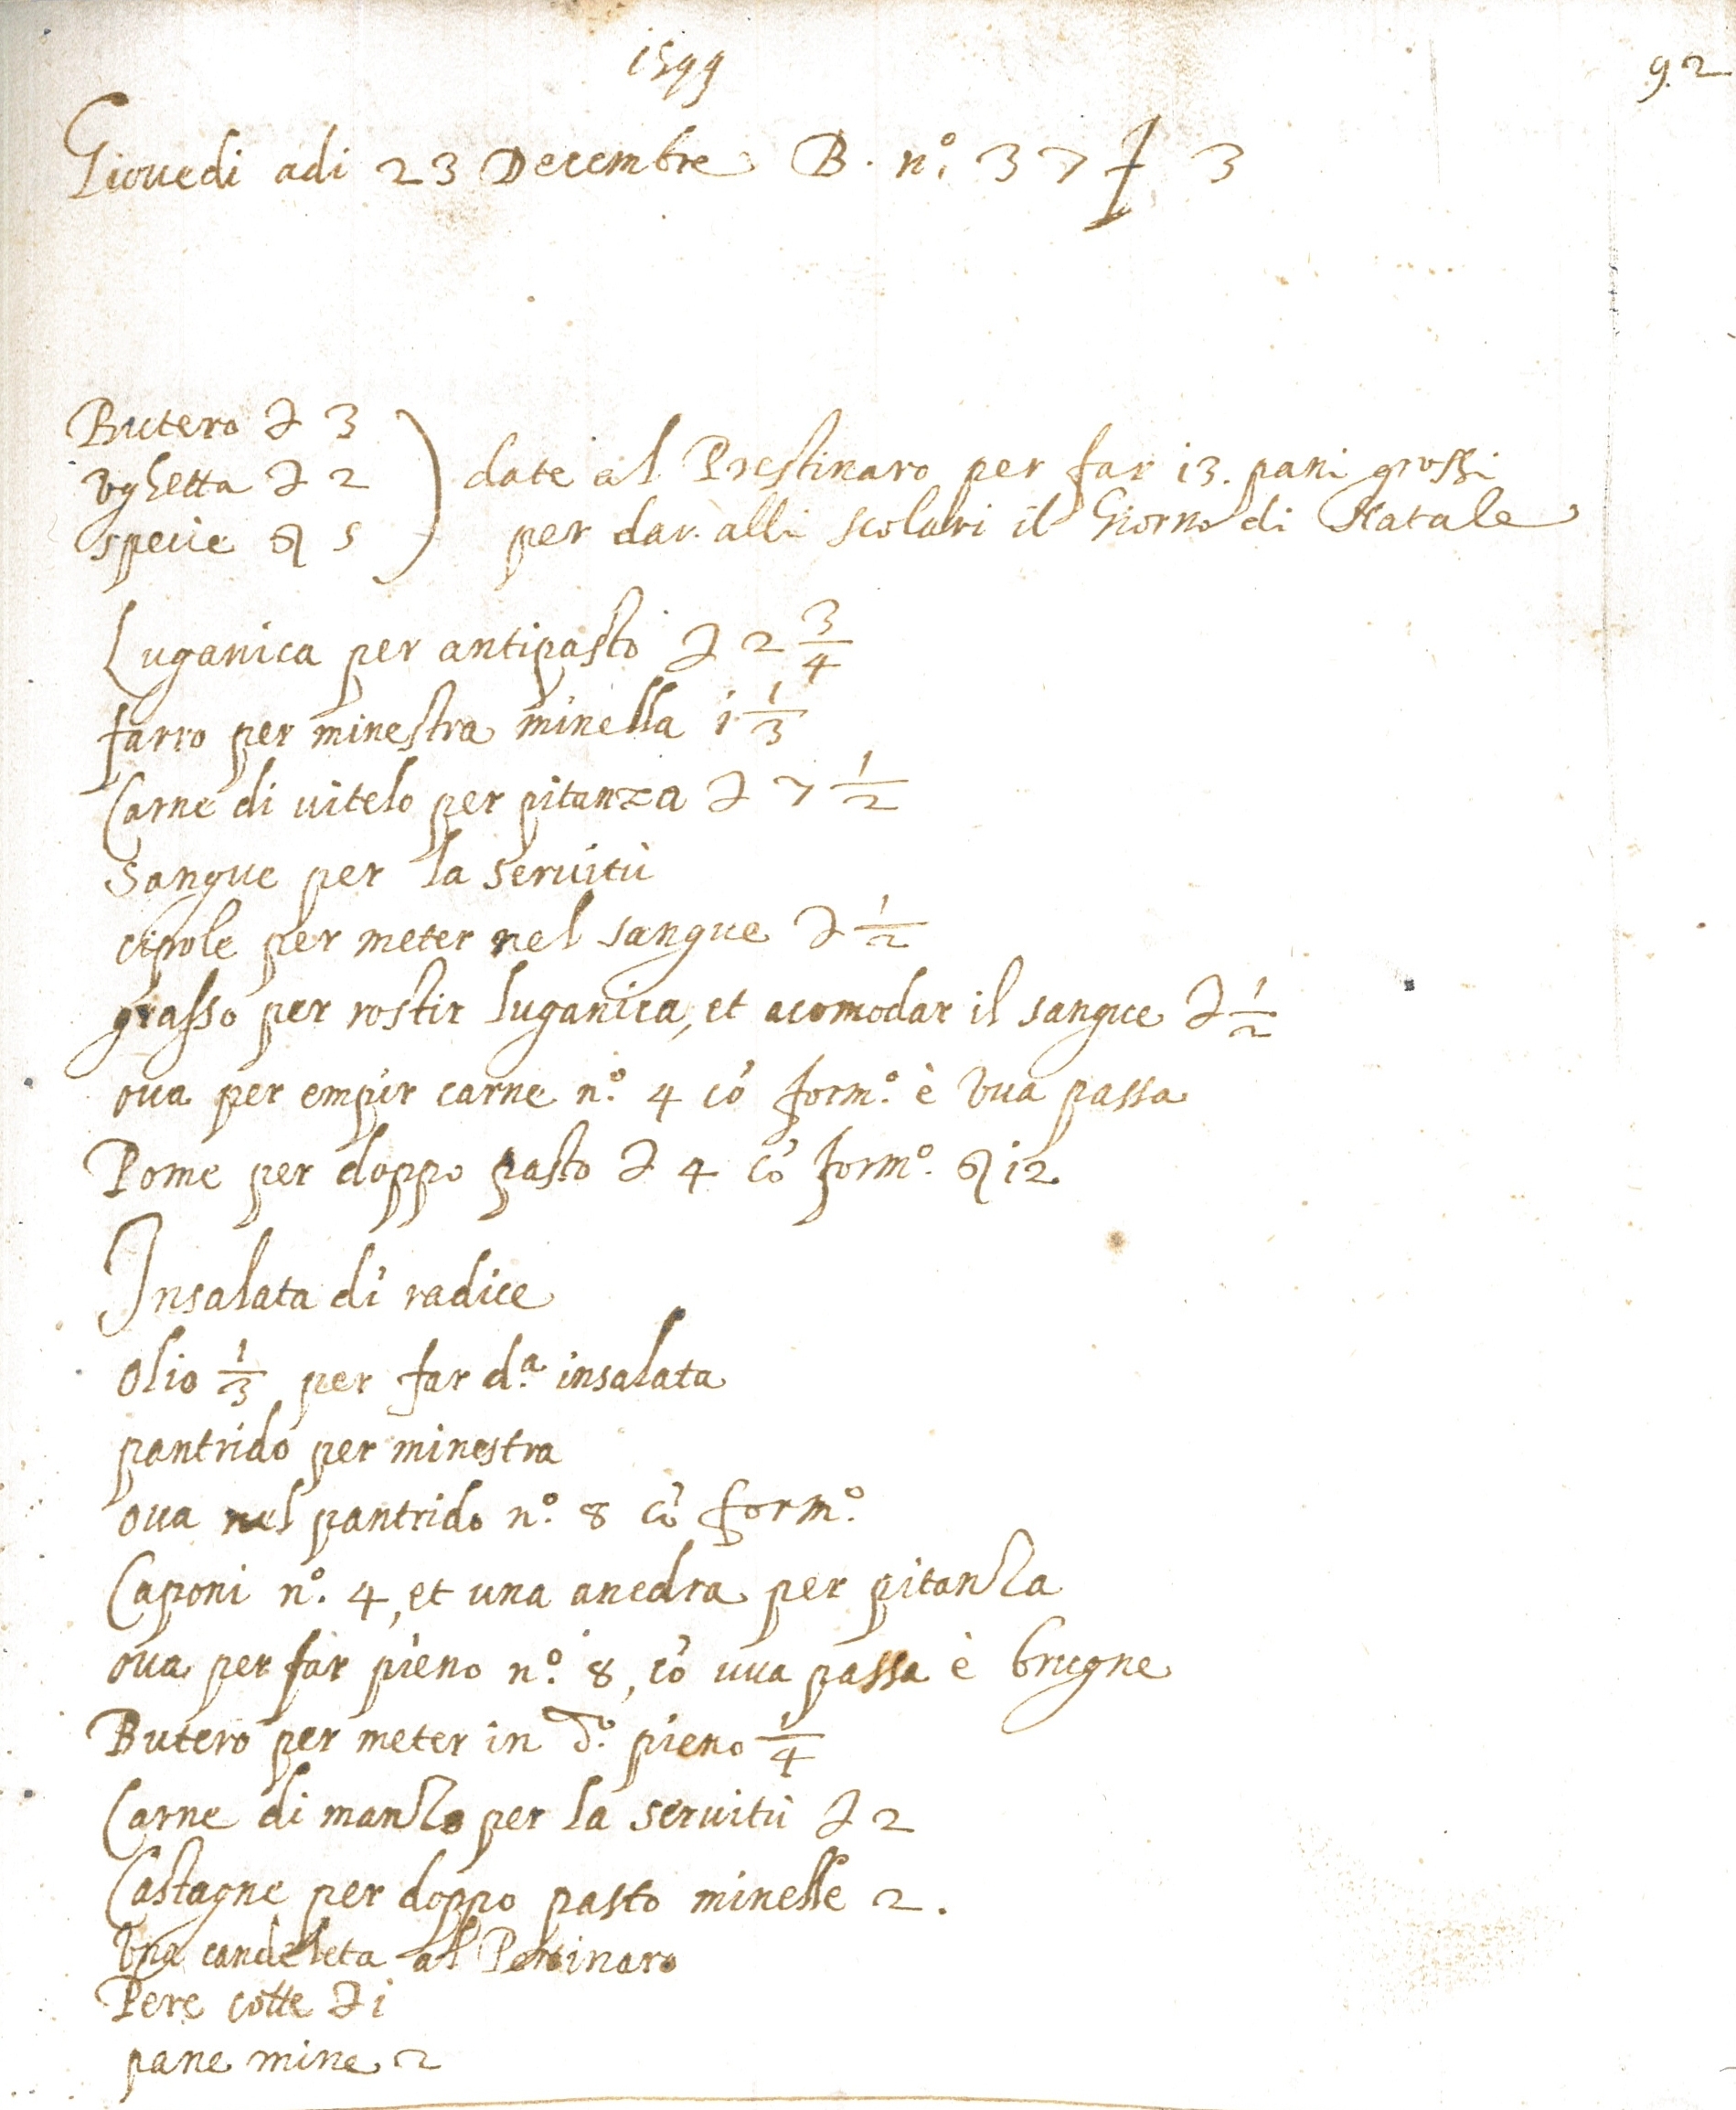 1599
92
Giouedi adi 23 Decembre B. n.° 37 f 3
Butero ℔ 3
vghetta ℔ 2
specie ℥ 5
date al Prestinaro per far 13. pani grossi
per dar alli scolari il Giorno di Natale
Luganica per antipasto ℔ 2 3/4
farro per minestra minella 1 1/3
Carne di uitelo per pitanza ℔ 7 1/2
Sangue per la seruitù
cipole per meter nel sangue ℔ 1/2
grasso per rostir luganica, et acomodar il sangue ℔ 1/2
oua per empir carne n.° 4 cõ form.° è vua passa
Pome per doppo pasto ℔ 4 cõ form.° ℥ 12
Insalata di radice
olio 1/3 per far d.ª insalata
pantrido per minestra
oua nel pantrido n.° 8 cõ form.°
Caponi n.° 4, et una anedra per pitanza
oua per far pieno n.° 8, cõ uua passa è brugne
Butero per meter in d.° pieno 1/4
Carne di manzo per la seruitù ℔ 2
Castagne per doppo pasto minelle 2.
Vna candeleta al Prestinaro
Pere cotte ℔ 1
pane mine 2